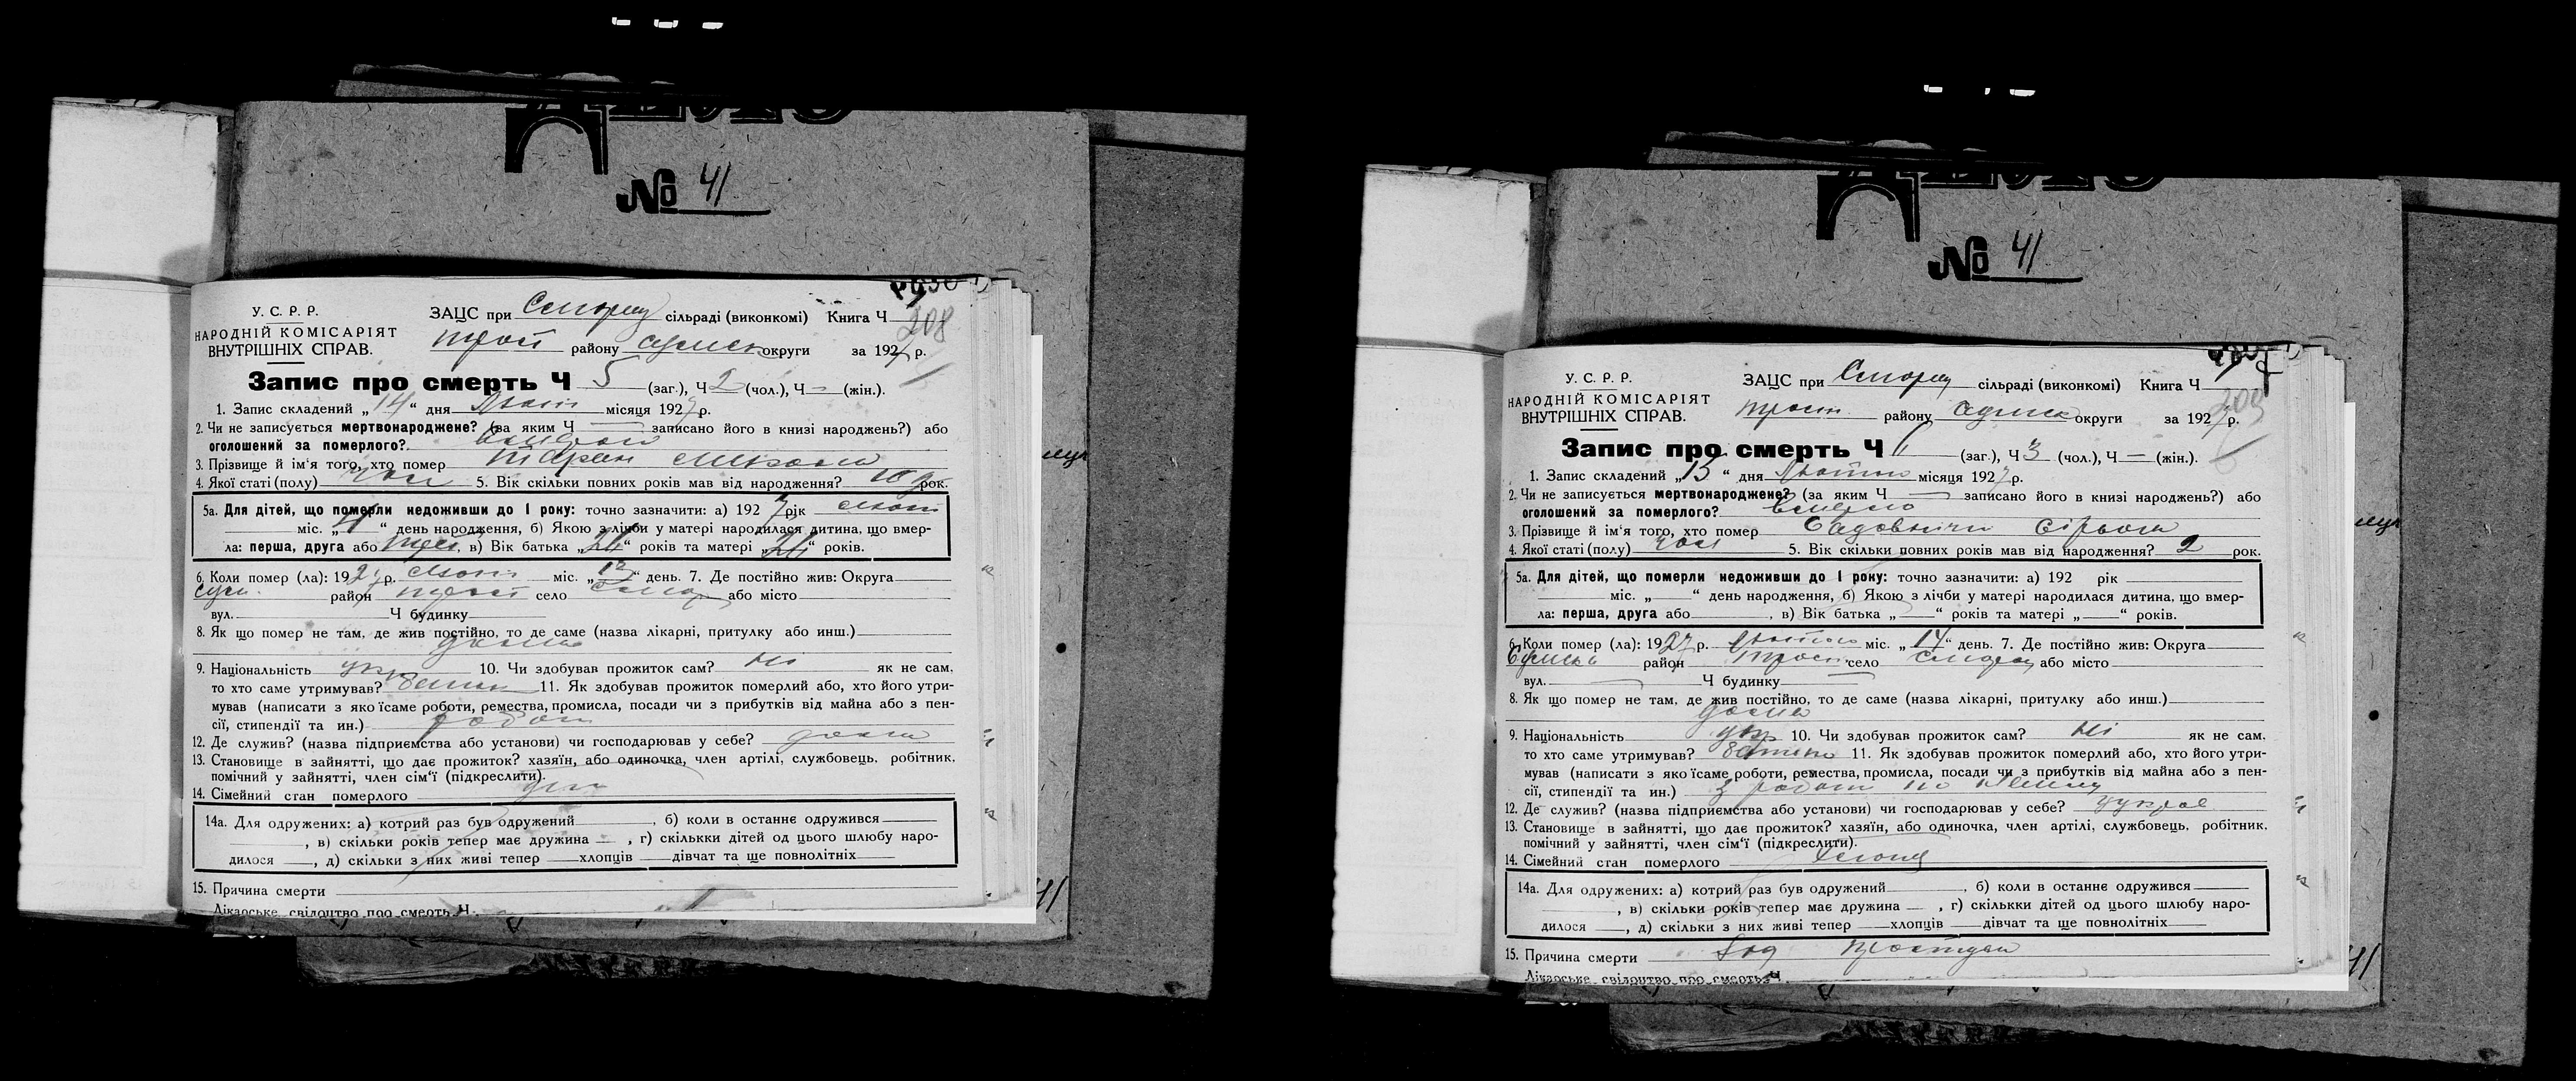 № 41
208
У. С. Р. Р.
НАРОДНІЙ КОМІСАРІЯТ
ВНУТРІШНІХ СПРАВ.
ЗАЦС при сільраді (виконкомі) Книга Ч
району округи за 1927 р.
Запис про смерть Ч 5 (заг.), Ч 2 (чол.), Ч — (жін.).
1. Запис складений „14“ дня місяця 1927 р.
2. Чи не записується мертвонароджене? (за яким Ч — записано його в книзі народжень?) або
оголошений за померлого?
3. Прізвище й ім'я того, хто помер Таран Микола
4. Якої статі (полу) чол 5. Вік скільки повних років мав від народження? рок.
5а. Для дітей, що померли недоживши до 1 року: точно зазначити: а) 1927 рік
міс. „ “ день народження, б) Якою з лічби у матері народилася дитина, що вмер-
ла: перша, друга або , в) Вік батька „ “ років та матері „ “ років.
6. Коли помер (ла): 1927 р. міс. „13“ день. 7. Де постійно жив: Округа
Сум. район трост село або місто
вул. Ч будинку
8. Як що помер не там, де жив постійно, то де саме (назва лікарні, притулку або инш.)
дома
9. Національність укр 10. Чи здобував прожиток сам? Ні як не сам,
то хто саме утримував? батько 11. Як здобував прожиток померлий або, хто його утри-
мував (написати з якоїсаме роботи, ремества, промисла, посади чи з прибутків від майна або з пен-
сії, стипендії та ин.) робот
12. Де служив? (назва підприємства або установи) чи господарював у себе? дома
13. Становище в зайнятті, що дає прожиток? хазяїн, або одиночка, член артілі, службовець, робітник,
помічний у зайнятті, член сім'ї (підкреслити).
14. Сімейний стан померлого
14а. Для одружених: а) котрий раз був одружений , б) коли в останнє одружився
, в) скільки років тепер має дружина — , г) скількки дітей од цього шлюбу наро-
дилося , д) скільки з них живі тепер хлопців дівчат та ще повнолітніх
15. Причина смерти
Лікарське свідоцтво про смерть Ч.
№ 41
209
У. С. Р. Р.
НАРОДНІЙ КОМІСАРІЯТ
ВНУТРІШНІХ СПРАВ.
ЗАЦС при сільраді (виконкомі) Книга Ч
трост району округи за 1927 р.
Запис про смерть Ч 6 (заг.), Ч 3 (чол.), Ч — (жін.).
1. Запис складений „15“ дня Лютого місяця 1927 р.
2. Чи не записується мертвонароджене? (за яким Ч — записано його в книзі народжень?) або
оголошений за померлого? вмерло
3. Прізвище й ім'я того, хто помер Садовничи Сірьожа
4. Якої статі (полу) чол 5. Вік скільки повних років мав від народження? 2 рок.
5а. Для дітей, що померли недоживши до 1 року: точно зазначити: а) 192 рік
міс. „ “ день народження, б) Якою з лічби у матері народилася дитина, що вмер-
ла: перша, друга або , в) Вік батька „ “ років та матері „ “ років.
6. Коли помер (ла): 1927 р. Лютого міс. „14“ день. 7. Де постійно жив: Округа
район трост село або місто
вул. — Ч будинку —
8. Як що помер не там, де жив постійно, то де саме (назва лікарні, притулку або инш.)
дома
9. Національність укр 10. Чи здобував прожиток сам? Ні як не сам,
то хто саме утримував? батько 11. Як здобував прожиток померлий або, хто його утри-
мував (написати з якоїсаме роботи, ремества, промисла, посади чи з прибутків від майна або з пен-
сії, стипендії та ин.) з робот по
12. Де служив? (назва підприємства або установи) чи господарював у себе?
13. Становище в зайнятті, що дає прожиток? хазяїн, або одиночка, член артілі, службовець, робітник,
помічний у зайнятті, член сім'ї (підкреслити).
14. Сімейний стан померлого
14а. Для одружених: а) котрий раз був одружений , б) коли в останнє одружився
, в) скільки років тепер має дружина — , г) скількки дітей од цього шлюбу наро-
дилося , д) скільки з них живі тепер хлопців дівчат та ще повнолітніх
15. Причина смерти од простуди
Лікарське свідоцтво про смерть Ч.